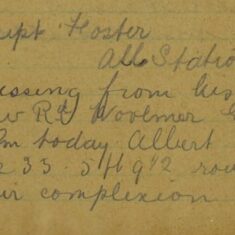 Supt Foster
All Statio
issing from his
w Rd Woolmer G
pm today Albert
e 33 5ft 9½ rou
ir complexion